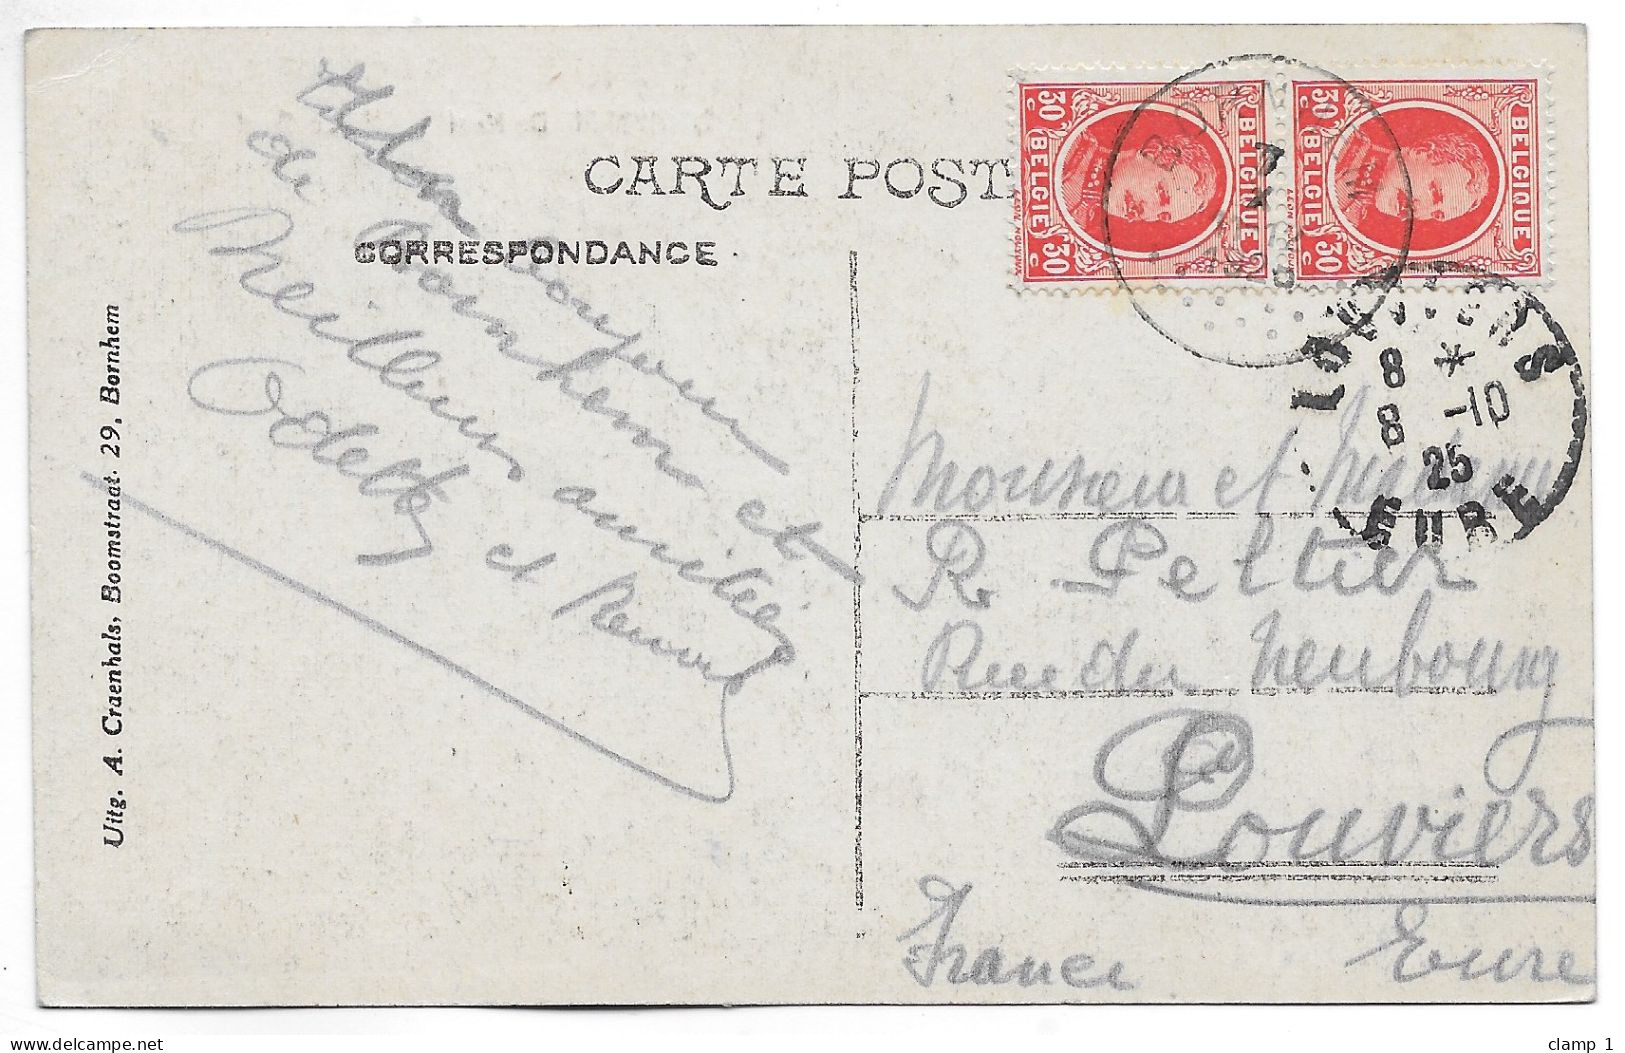 CARTE POST
CORRESPONDANCE
Un bon bonjour
de Bornhem et
Meilleurs amitiés
et
Odette
Uitg. A. Craenhals, Boomstraat. 29, Bornhem
30 c BELGIE BELGIQUE 30 c
30 c BELGIE BELGIQUE 30 c
BORNHEM
LOUVIERS
8 *
8 -10
25
EURE
Monsieur et Madame
R Peltier
Rue du Neubourg
Louviers
Eure
France
clamp 1
delcampe.net